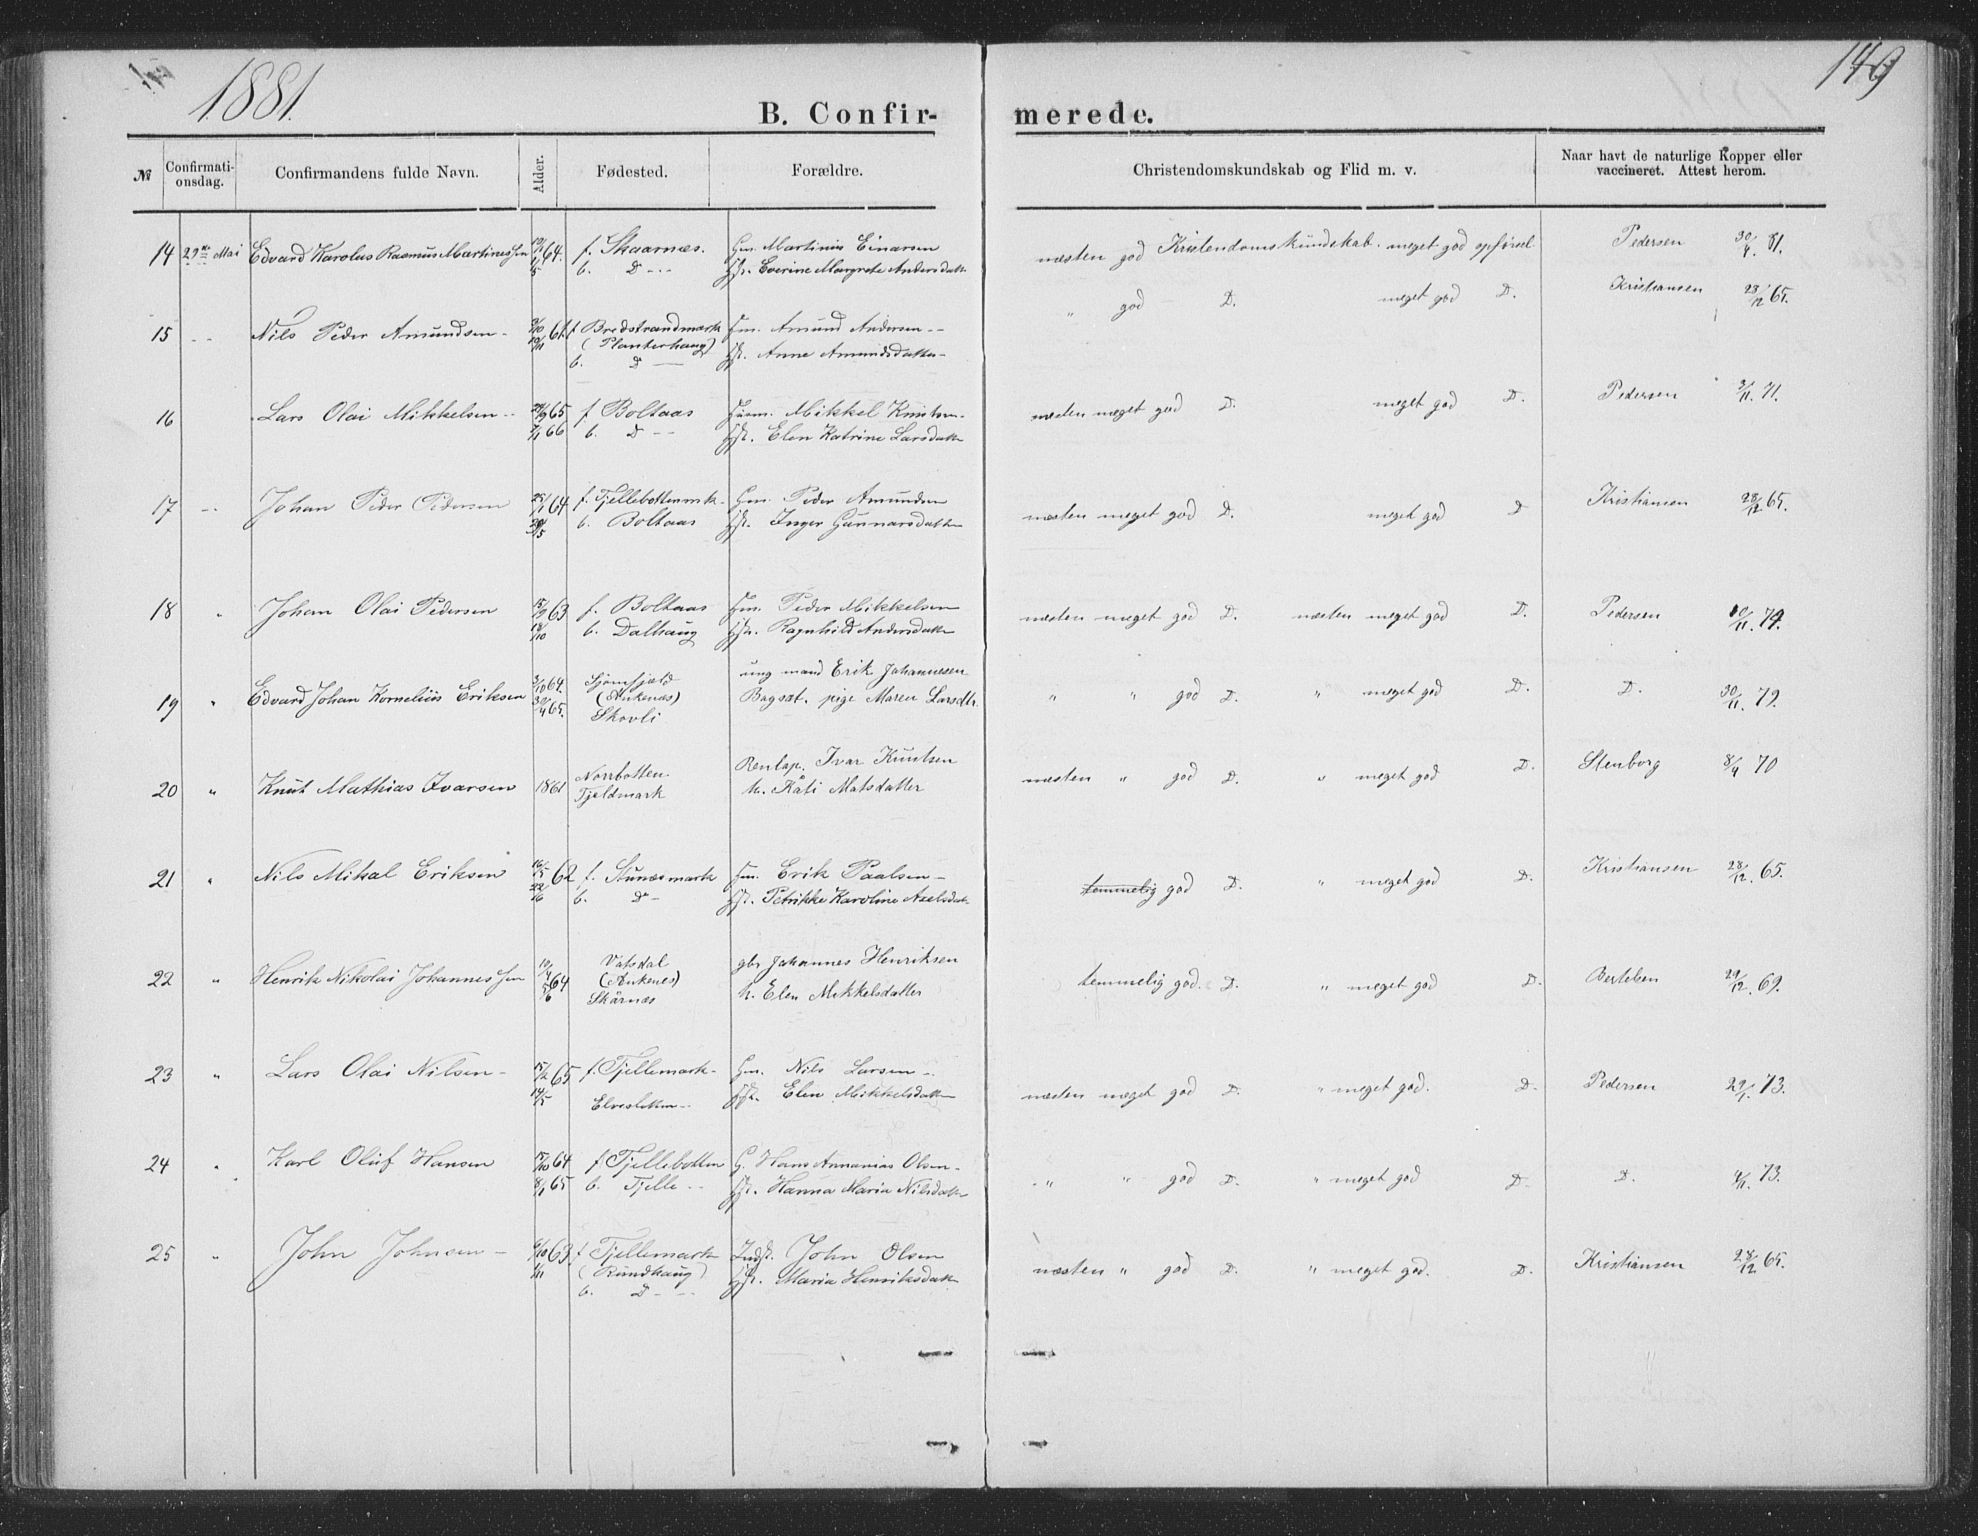 1881.
149
B. Confirmerede.
№ Confirmationsdag. Confirmandens fulde Navn. Alder. Fødested. Forældre. Christendomskundskab og Flid m. v. Naar havt de naturlige Kopper eller vaccineret. Attest herom.
14 29de Mai Edvard Karolus Rasmus Martinessen 64. f. Skaarnæs. Gm. Martinus Einarsen næsten god Kristendomskundskab. meget god opførsel Pedersen 30/4. 81.
b. D Hst. Everine Margrete Andersdatt
15 Nils Peder Amundsen 3/10 61. f Bredstrandmark Gm. Amund Andersen " god D. meget god D. Kristiansen 28/12 65.
10/11 (Planterhaug) Hst. Anne Amundsdatter
b. D
16 Lars Olai Mikkelsen 65 f Boltaas Husm. Mikkel Knutsen næsten meget god D. meget god D. Pedersen 3/11. 71.
7/1 66 b. D Hst. Elen Katrine Larsdatt
17 Johan Peder Pedersen 25/1 64 f. Tjellebottenmk. Gm. Peder Amundsen næsten meget god D. meget god D Kristiansen 28/12 65.
b. Boltaas Hst. Inger Gunnarsdatt
18 " Johan Olai Pedersen 15/9 63 f. Boltaas Gm. Peder Mikkelsen næsten meget god D. næsten meget god D. Pedersen 10/11. 79.
18/10 b. Dalhaug Hst. Ragnhild Andersdatt
19 " Edvard Johan Kornelius Eriksen 3/10 64. Sjømfjæld ung mand Erik Johannesen " " god D. " meget god D. D. 30/11. 79.
30/4 65. (Ankenes) Bagsæt. pige Maren Larsdtr.
Skovli
20 " Knut Mathias Ivarsen 1861 Norrbotten. Renlap. Ivar Knutsen næsten " god D. " meget god D. Stenborg 8/4 70
Tjeldmark h. Kåti Matsdatter
21 " Nils Mikal Eriksen 16/5 62 f. Stunæsmark Gm. Erik Paalsen temmelig god D. " meget god D. Kristiansen 28/12. 65.
22/6 b. D Hst. Petrikke Karoline Axelsdatt
22 " Henrik Nikolai Johannessen 10/4 64 Vatsdal gbr Johannes Henriksen temmelig god. D. " meget god D. Berteben 29/12. 69.
(Ankenes) h. Elen Mikkelsdatter
Skårnæs
23 " Lars Olai Nilsen 15/2 65 f. Tjellemark Gm. Nils Larsen næsten meget god D. " meget god. D. Pedersen 29/1. 73.
14/5 Elvesletten Hst. Elen Mikkelsdatt
24 " Karl Oluf Hansen 15/10 64 f Tjellebotten G. Hans Annanias Olsen " " god D. " meget god D. D. 4/11. 73.
8/1 65 b. Tjelle Hst. Hanna Maria Nilsdatt
25 " John Johnsen 6/10 63 f Tjellemark Indst. John Olsen næsten " god D. " meget god. D. Kristiansen 28/12 65.
1/11 (Rundhaug) Hst. Maria Henriksdatt
b. D